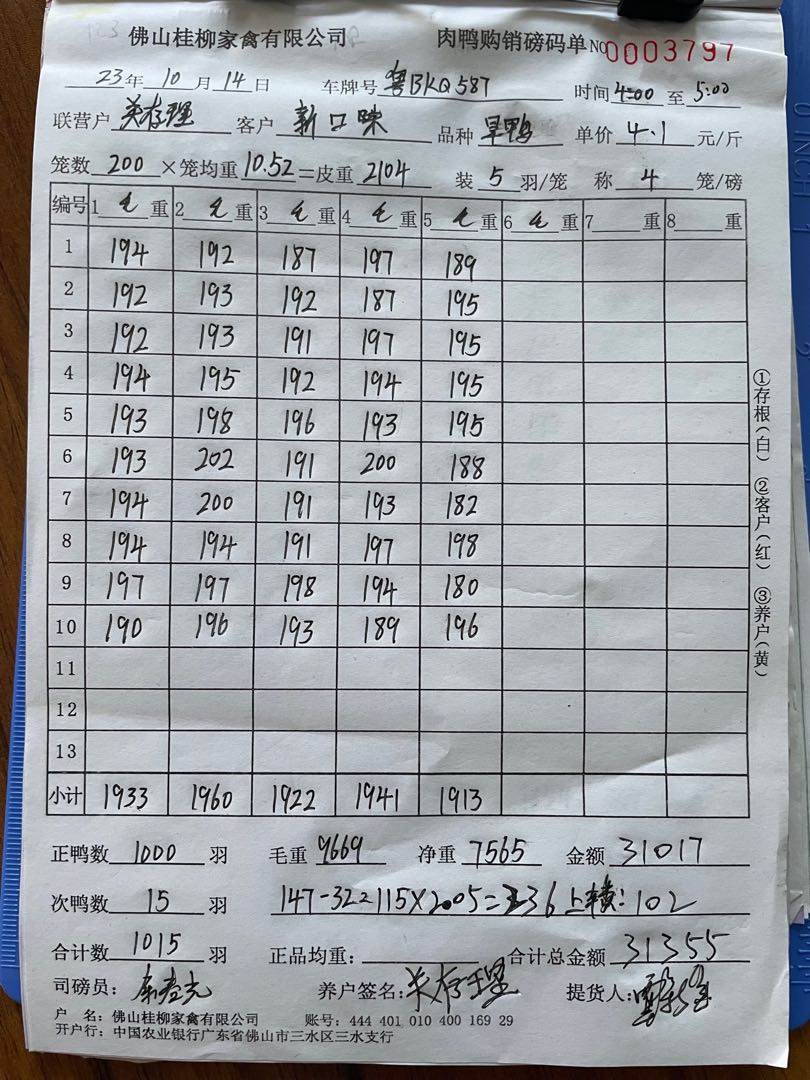 佛山桂柳家禽有限公司 肉鸭购销磅码单 NO 0003797
23年 10月 14日 车牌号 粤BKQ587 时间 4:00 至 5:00
联营户 关存理 客户 新口味 品种 旱鸭 单价 4.1 元/斤
笼数 200 ×笼均重 10.52 =皮重 2104 装 5 羽/笼 称 4 笼/磅
编号 1 毛 重 2 毛 重 3 毛 重 4 毛 重 5 毛 重 6 毛 重 7 重 8 重
1 194 192 187 197 189
2 192 193 192 187 195
3 192 193 191 197 195
4 194 195 192 194 195
5 193 198 196 193 195
6 193 202 191 200 188
7 194 200 191 193 182
8 194 194 191 197 198
9 197 197 198 194 180
10 190 196 193 189 196
11
12
13
小计 1933 1960 1922 1941 1913
正鸭数 1000 羽 毛重 9669 净重 7565 金额 31017
次鸭数 15 羽 147-32=115×2.05=236 上车费:102
合计数 1015 羽 正品均重: 合计总金额 31355
司磅员: 养户签名:关存理 提货人:
户 名:佛山桂柳家禽有限公司 账号:444 401 010 400 169 29
开户行:中国农业银行广东省佛山市三水区三水支行
①存根(白) ②客户(红) ③养户(黄)